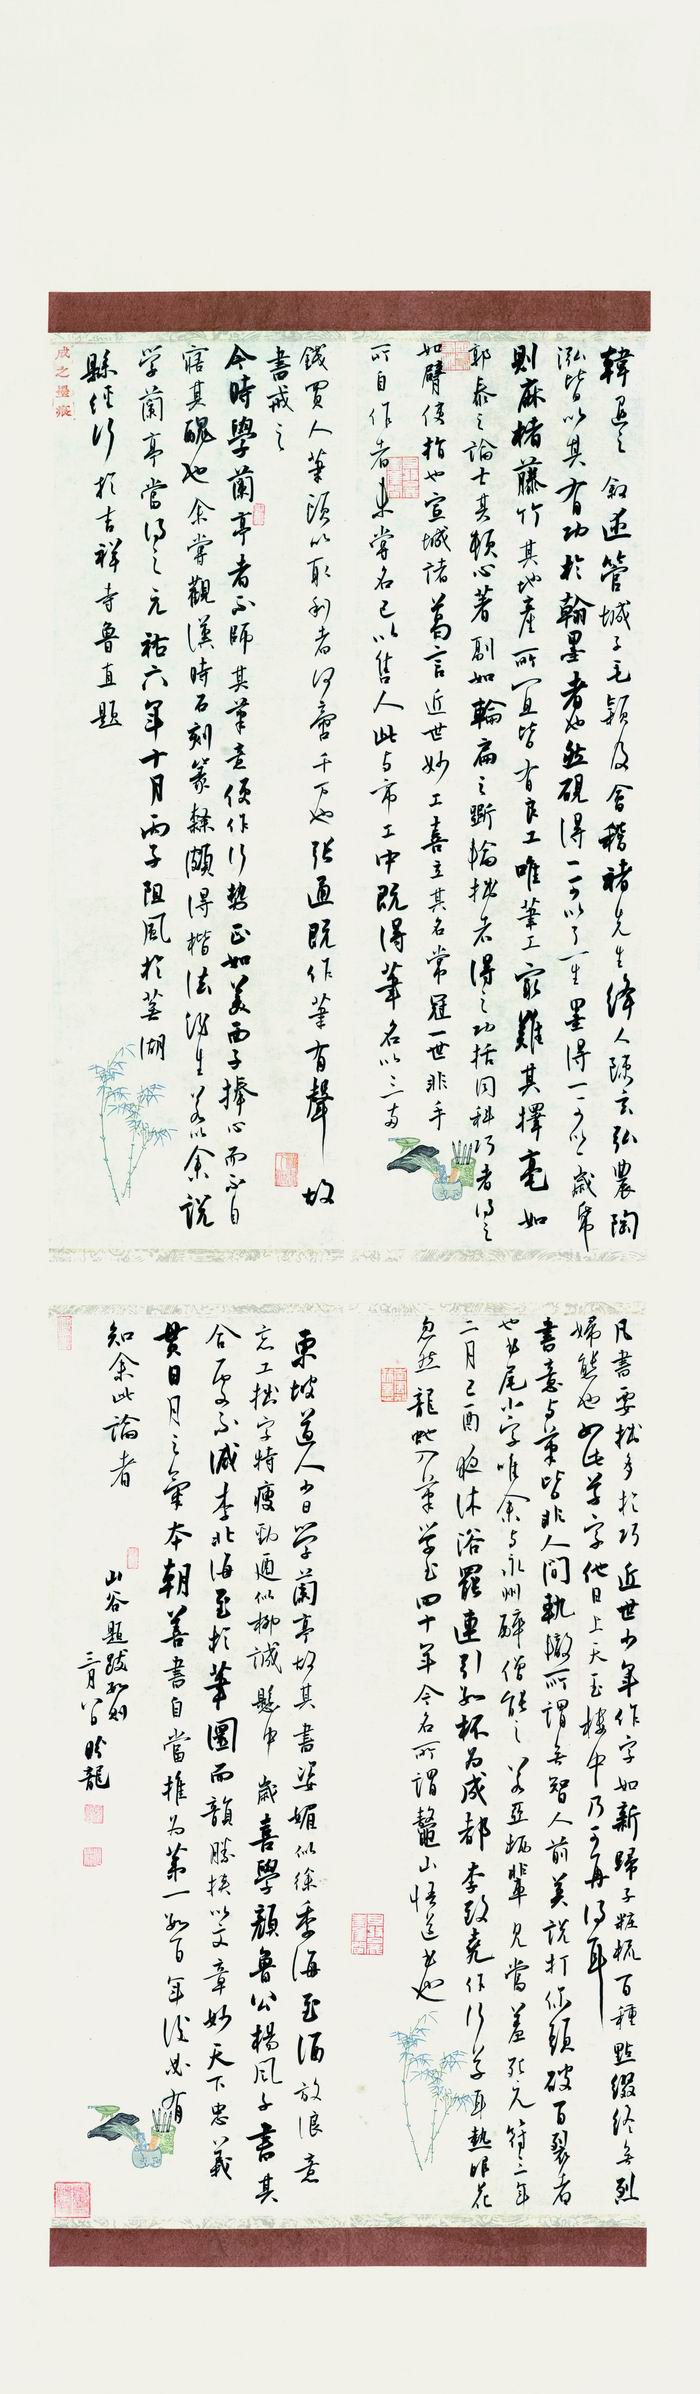 韓退之敘述管城子毛穎及會稽褚先生絳人陳玄弘農陶
泓皆以其有功於翰墨者也然硯得一可以了一生墨得一可以歲席
則麻楮藤竹其地產所宜皆有良工唯筆工最難其擇毫如
郭泰之論士其頓心著副如輪扁之斲輪拙者得之功括同科巧者得之
如臂使指也宣城諸葛言近世妙工喜立其名常冠一世非手
所自作者未嘗名已以售人此与市工中既得筆名以三
錢買人筆頭以取利者何啻千万也張通既作筆有聲故
書戒之
今時學蘭亭者不師其筆意便作行勢正如美西子捧心而不自
寤其醜也余嘗觀漢時石刻篆隸頗得楷法後生若以余說
学蘭亭當得之元祐六年十月丙子阻風於蕪湖
縣徑行於吉祥寺魯直題
凡書要拙多於巧近世少年作字如新歸子粧梳百種點綴終無烈
婦態也如此草字他日上天玉樓中乃可再得耳
書意与筆皆非人間軌轍所謂無智人前莫說打你頭破百裂者
也此尾小字唯余与永州醉僧能之若亞栖輩見當羞死元符三年
二月己酉夜沐浴罷連引數杯為成都李致堯作行草耳熱眼花
忽然龍蛇入筆学書四十年今名所謂鼇山悟道書也
東坡道人少日学蘭亭故其書姿媚似徐季海至酒放浪意
忘工拙字特瘦勁迺似柳誠懸中歲喜學顏魯公楊風子書其
合處不減李北海至於筆圜而韻勝挾以文章妙天下忠義
貫日月之氣本朝善書自當推為第一數百年後必有
知余此論者
山谷題跋數則
三月
龍